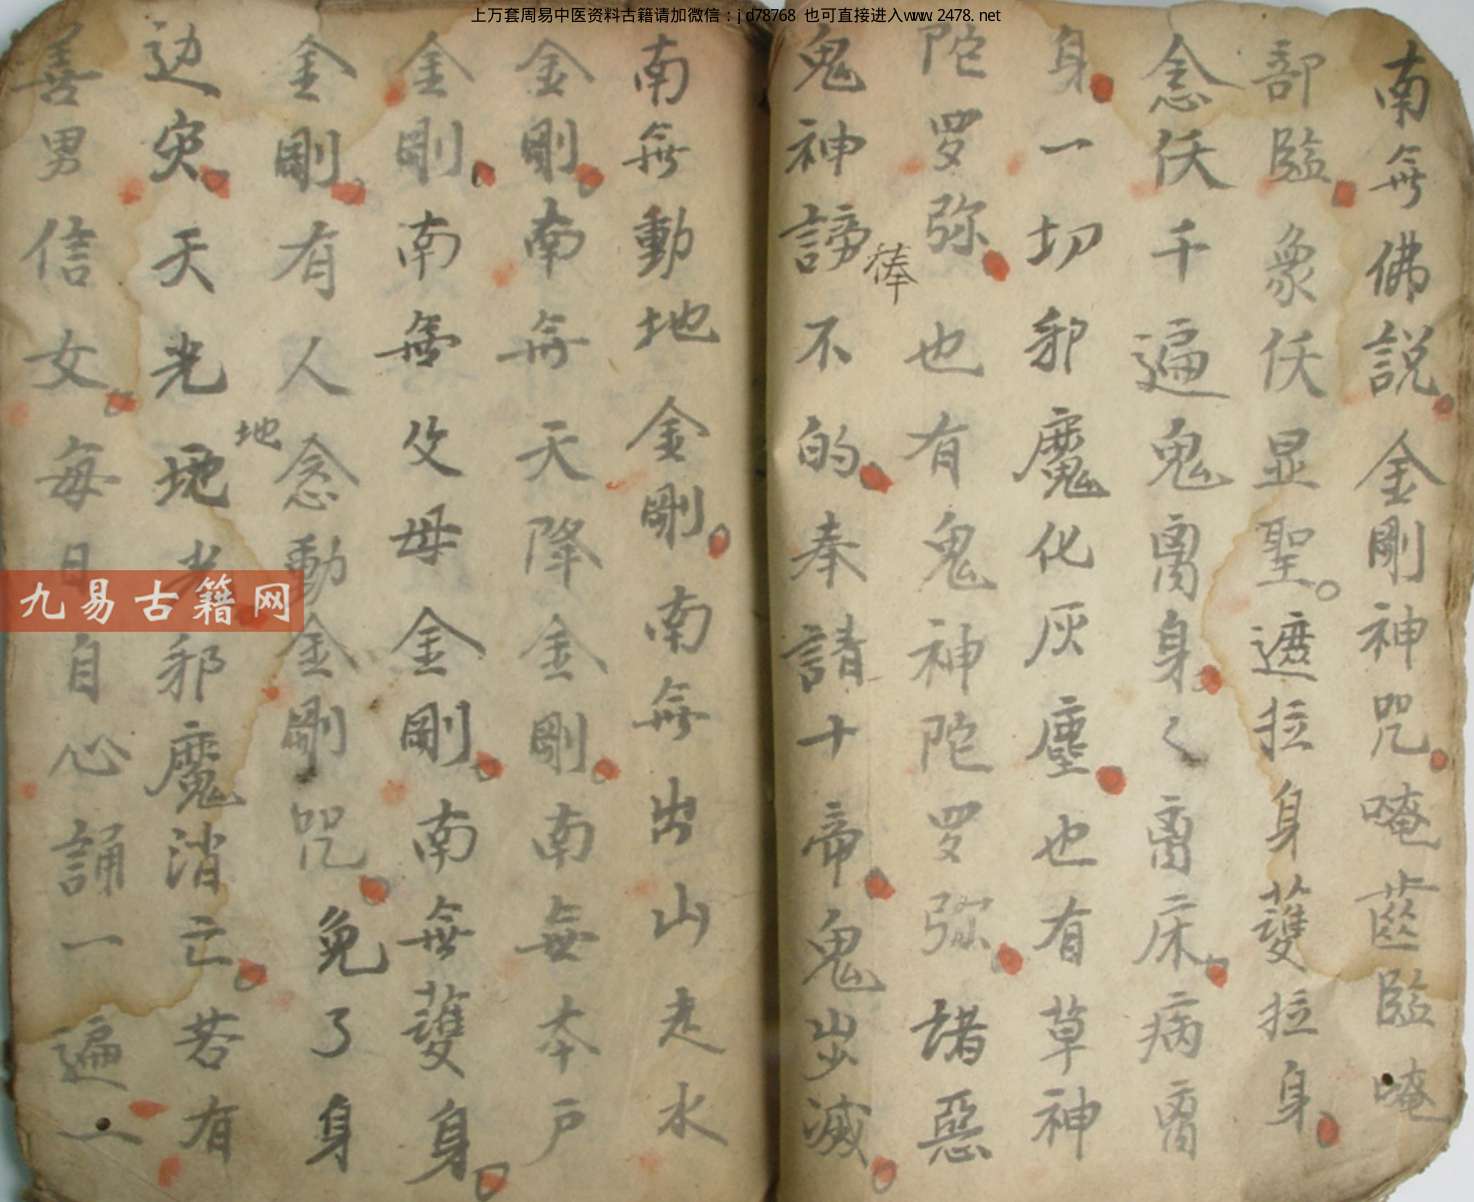 上万套周易中医资料古籍请加微信：jd78768 也可直接进入www.2478.net
南無佛説。金剛神咒唵齒臨唵
部臨。象仸显聖。遮拉身護拉身。
念仸千遍鬼离身。〻离床。病离
身。一切邪魔化灰塵。也有草神
陀罗弥。也有鬼神陀罗弥。諸惡
鬼神謗不的。奉請十帝。鬼出滅。
捧
南無動地金剛。南無出山走水
金剛。南無天降金剛。南無本户
金剛。南無父母金剛。南無護身。
金剛。有人念動金剛咒。免了身
边灾。天光地光邪魔消亡。若有
地
善男信女。每日自心誦一遍
九易古籍网